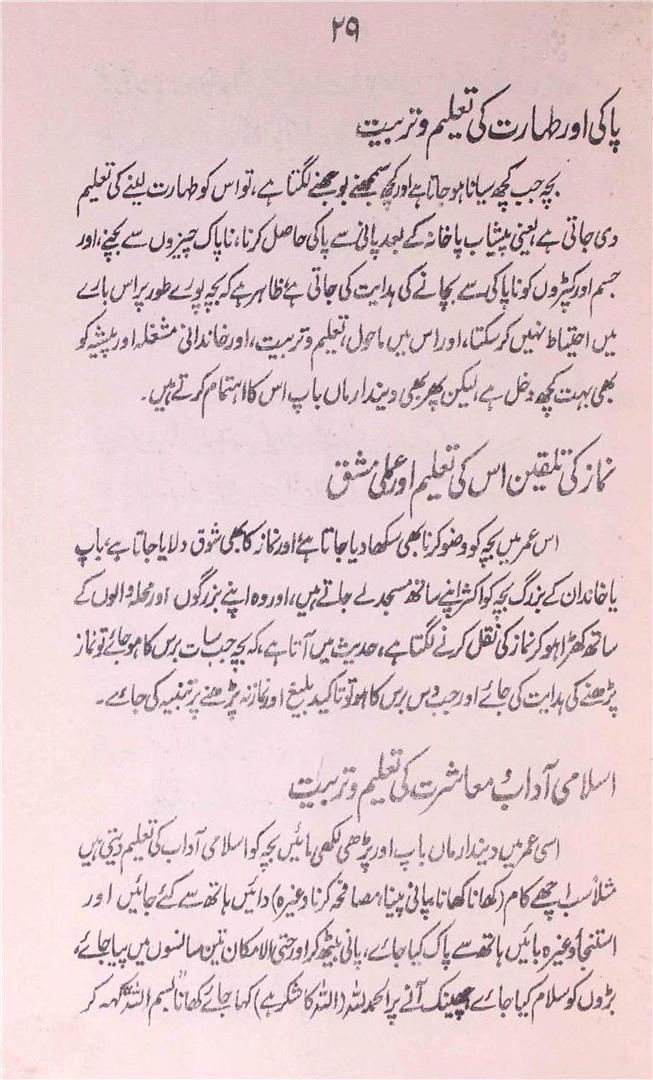 ۲۹
پاکی اور طہارت کی تعلیم و تربیت
بچہ جب کچھ سیانا ہو جاتا ہے اور کچھ سمجھنے بوجھنے لگتا ہے، تو اس کو طہارت لینے کی تعلیم
دی جاتی ہے، یعنی پیشاب پاخانہ کے بعد پانی سے پاکی حاصل کرنا، ناپاک چیزوں سے بچنے، اور
جسم اور کپڑوں کو ناپاکی سے بچانے کی ہدایت کی جاتی ہے ظاہر ہے کہ بچہ پورے طور پر اس بارے
میں احتیاط نہیں کر سکتا، اور اس میں ماحول، تعلیم و تربیت، اور خاندانی مشغلہ اور پیشہ کو
بھی بہت کچھ دخل ہے، لیکن پھر بھی دیندار ماں باپ اس کا اہتمام کرتے ہیں۔
نماز کی تلقین اس کی تعلیم اور عملی مشق
اس عمر میں بچہ کو وضو کرنا بھی سکھا دیا جاتا ہے، اور نماز کا بھی شوق دلایا جاتا ہے، باپ
یا خاندان کے بزرگ بچہ کو اکثر اپنے ساتھ مسجد لے جاتے ہیں، اور وہ اپنے بزرگوں اور محلہ والوں کے
ساتھ کھڑا ہو کر نماز کی نقل کرنے لگتا ہے، حدیث میں آتا ہے، کہ بچہ جب سات برس کا ہو جائے تو نماز
پڑھنے کی ہدایت کی جائے اور جب دس برس کا ہو تو تاکید بلیغ اور نماز نہ پڑھنے پر تنبیہ کی جائے۔
اسلامی آداب معاشرت کی تعلیم و تربیت
اسی عمر میں دیندار ماں باپ اور پڑھی لکھی مائیں بچہ کو اسلامی آداب کی تعلیم دیتی ہیں
مثلاً سب اچھے کام (کھانا کھانا، پانی پینا، مصافحہ کرنا وغیرہ) دائیں ہاتھ سے کئے جائیں اور
استنجا وغیرہ بائیں ہاتھ سے پاک کیا جائے، پانی بیٹھ کر اور حتی الامکان تین سانسوں میں پیا جائے،
بڑوں کو سلام کیا جائے، چھینک آنے پر الحمد للہ (اللہ کا شکر ہے) کہا جائے کھانا "بسم اللہ" کہہ کر